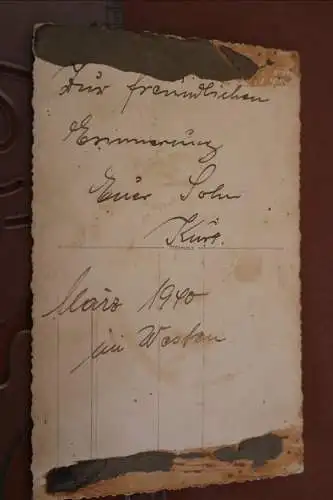 Zur freundlichen
Erinnerung
Euer Sohn
Kurt.
März 1940
im Westen